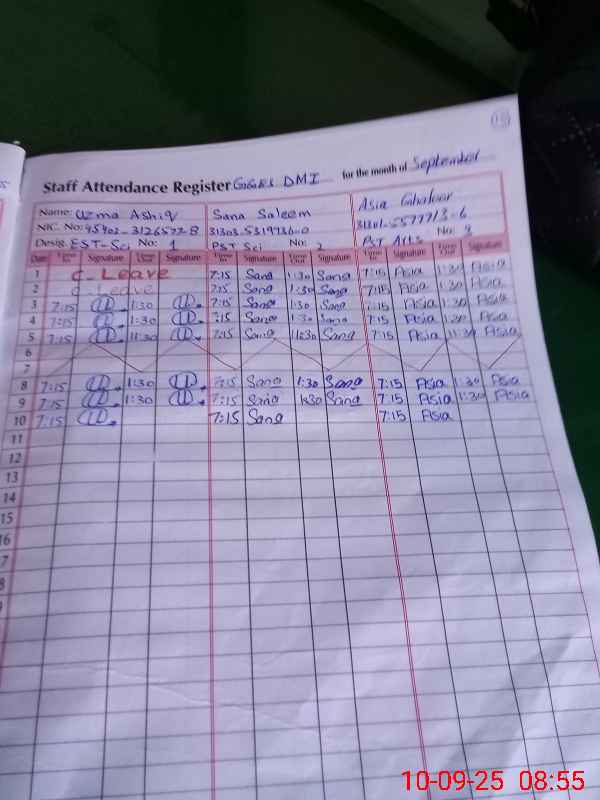 Staff Attendance Register GGES DMI for the month of September
Name: Uzma Ashiq Sana Saleem Asia Ghafoor
NIC. No: 45403-3126577-8 31303-5319736-0 31301-5577713-6
Desig. EST-Sci No: 1 PST Sci No: 2 PST Arts No: 3
Date Time In Signature Time Out Signature Time In Signature Time Out Signature Time In Signature Time Out Signature
1 C-Leave 7:15 Sana 1:30 Sana 7:15 Asia 1:30 Asia
2 C-Leave 7:15 Sana 1:30 Sana 7:15 Asia 1:30 Asia
3 7:15 1:30 7:15 Sana 1:30 Sana 7:15 Asia 1:30 Asia
4 7:15 1:30 7:15 Sana 1:30 Sana 7:15 Asia 1:30 Asia
5 7:15 11:30 7:15 Sana 11:30 Sana 7:15 Asia 11:30 Asia
6
7
8 7:15 1:30 7:15 Sana 1:30 Sana 7:15 Asia 1:30 Asia
9 7:15 1:30 7:15 Sana 1:30 Sana 7:15 Asia 1:30 Asia
10 7:15 7:15 Sana 7:15 Asia
11
12
13
14
15
16
7
8
10-09-25 08:55